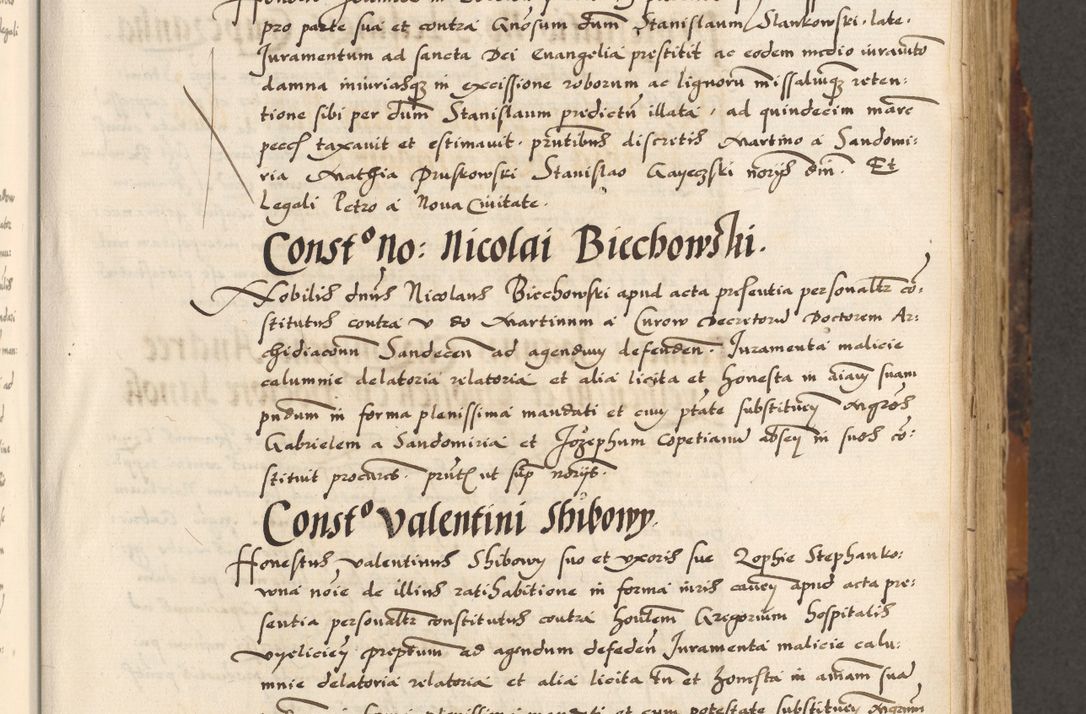 pro parte sua et contra Gnosum dum Stanislaum Slankowski · late ·
Juramentum ad sancta Dei Evangelia prestitit ac eodem medio iuravit
damna iniuriasque in excissione roborum ac lignorum missaliumque reten:
tione sibi per dum Stanislaum predictum illata · ad quindecim marc
pecc taxavit et estimavit · pntibus discretis Martino a Sandomi:
ria Mathia Pruskowski Stanislao Gayeczski norijs dni · Et
Legali Petro a Nova Civitate ·
Consto no: Nicolai Biechowski.
Nobilis dnus Nicolaus Biechowski apud acta presentia personaltr co:
stitutus contra v do Martinum a Curow Decretoru Doctorem Ar:
chidiaconu Sandecen ad agendum defenden · Juramenta malicie
calumnie delatoria relatoria et alia licita et honesta in aiam suam
pndum in forma plenissima mandati et cum ptate substituen Mgros
Gabrielem a Sandomiria et Jozephum Copetianu absen in suos co:
stituit procures · pnt ut sup norijs ·
Consto Valentini Skibowy.
Honestus Valentinus Skibowy suo et uxoris sue Zophie Stephanko:
wna noie de illius ratihabitione in forma iuris caven apud acta pre:
sentia personaltr constitutus contra Honlem Gregorium hospitalis
preptum ad agendum defeden Juramenta malicie calu:
mnie delatoria relatoria et alia licita et honesta in aiam sua
plenissima mandati et cum potestate substituen Mgrum